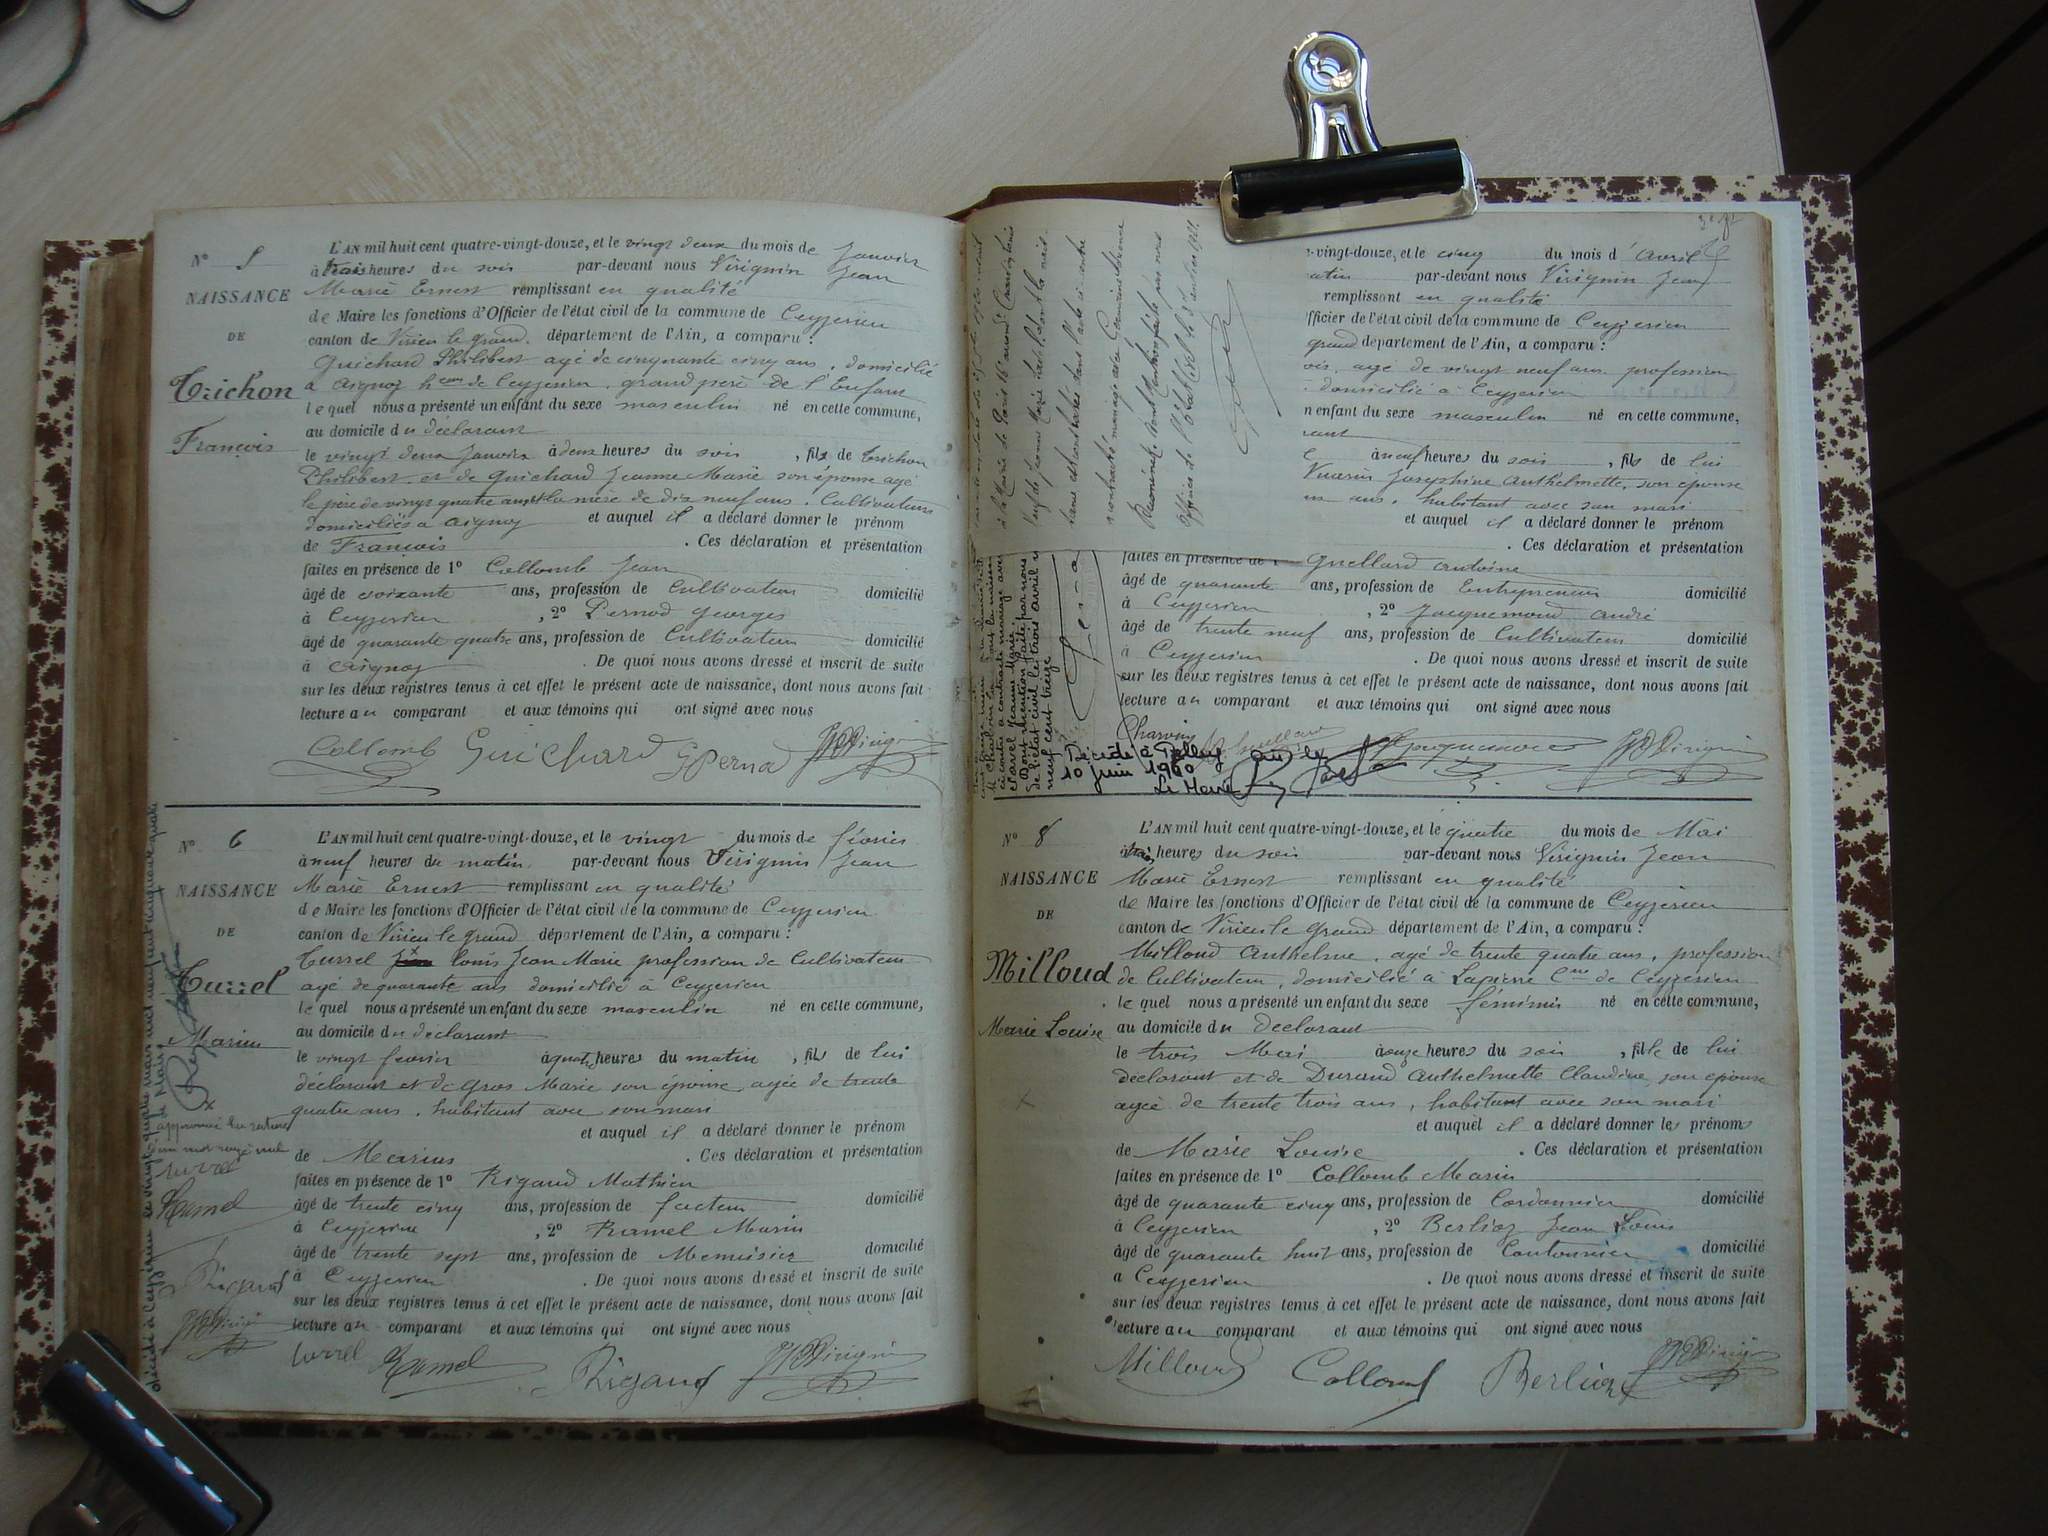 N° 5
NAISSANCE
DE
Trichon
François
L'AN mil huit cent quatre-vingt-douze, et le vingt deux du mois de Janvier
à trois heures du soir par-devant nous Virignin Jean
Marie Ernest remplissant en qualité
de Maire les fonctions d'Officier de l'état civil de la commune de Ceyzerieu
canton de Virieu le grand département de l'Ain, a comparu :
Guichard Philibert agé de cinquante cinq ans, domicilié
à Aignoz hau de Ceyzerieu, grand père de l'Enfant
lequel nous a présenté un enfant du sexe masculin né en cette commune,
au domicile du déclarant
le vingt deux Janvier à deux heures du soir, fils de Trichon
Philibert et de Guichard Jeanne Marie son épouse agé
le père de vingt quatre ans et la mère de dix neuf ans. Cultivateurs
domiciliés à Aignoz et auquel il a déclaré donner le prénom
de François. Ces déclaration et présentation
faites en présence de 1° Collomb Jean
âgé de soixante ans, profession de Cultivateur domicilié
à Ceyzerieu, 2° Pernod Georges
âgé de quarante quatre ans, profession de Cultivateur domicilié
à Aignoz. De quoi nous avons dressé et inscrit de suite
sur les deux registres tenus à cet effet le présent acte de naissance, dont nous avons fait
lecture au comparant et aux témoins qui ont signé avec nous
Collomb Guichard G Pernod
N° 6
NAISSANCE
DE
Turrel
Marius
L'AN mil huit cent quatre-vingt-douze, et le vingt du mois de février
à neuf heures du matin par-devant nous Virignin Jean
Marie Ernest remplissant en qualité
de Maire les fonctions d'Officier de l'état civil de la commune de Ceyzerieu
canton de Virieu le grand département de l'Ain, a comparu :
Turrel Louis Jean Marie profession de Cultivateur
agé de quarante ans domicilié à Ceyzerieu
lequel nous a présenté un enfant du sexe masculin né en cette commune,
au domicile du déclarant
le vingt février à quatre heures du matin, fils de lui
déclarant et de Gros Marie son épouse, agée de trente
quatre ans, habitant avec son mari
et auquel il a déclaré donner le prénom
de Marius. Ces déclaration et présentation
faites en présence de 1° Rigaud Mathieu
âgé de trente cinq ans, profession de facteur domicilié
à Ceyzerieu, 2° Ramel Marin
âgé de trente sept ans, profession de Menuisier domicilié
à Ceyzerieu. De quoi nous avons dressé et inscrit de suite
sur les deux registres tenus à cet effet le présent acte de naissance, dont nous avons fait
lecture au comparant et aux témoins qui ont signé avec nous
Turrel Ramel Rigaud
approuvé la rature
d'un mot rayé nul
Turrel
Ramel
Rigaud
vingt-douze, et le cinq du mois d'Avril
matin par-devant nous Virignin Jean
remplissant en qualité
fficier de l'état civil de la commune de Ceyzerieu
grand département de l'Ain, a comparu :
agé de vingt neuf ans profession
domicilié à Ceyzerieu
n enfant du sexe masculin né en cette commune,
à neuf heures du soir, fils de lui
Josephine Anthelmette, son épouse
ans, habitant avec son mari
et auquel il a déclaré donner le prénom
. Ces déclaration et présentation
faites en présence de 1° Guillard Antoine
âgé de quarante ans, profession de Entrepreneur domicilié
à Ceyzerieu, 2° Jacquemond André
âgé de trente neuf ans, profession de Cultivateur domicilié
à Ceyzerieu. De quoi nous avons dressé et inscrit de suite
sur les deux registres tenus à cet effet le présent acte de naissance, dont nous avons fait
lecture au comparant et aux témoins qui ont signé avec nous
Charvin
Décédé à
10 juin 1960
Le Maire
N° 8
NAISSANCE
DE
Milloud
Marie Louise
L'AN mil huit cent quatre-vingt-douze, et le quatre du mois de Mai
à trois heures du soir par-devant nous Virignin Jean
Marie Ernest remplissant en qualité
de Maire les fonctions d'Officier de l'état civil de la commune de Ceyzerieu
canton de Virieu le grand département de l'Ain, a comparu :
Milloud Anthelme, agé de trente quatre ans, profession
de Cultivateur, domicilié à Lapierre Cne de Ceyzerieu
lequel nous a présenté un enfant du sexe féminin né en cette commune,
au domicile du declarant
le trois Mai à onze heures du soir, fille de lui
déclarant et de Durand Anthelmette Claudine, son épouse
agée de trente trois ans, habitant avec son mari
et auquel il a déclaré donner les prénoms
de Marie Louise. Ces déclaration et présentation
faites en présence de 1° Collomb Marin
âgé de quarante cinq ans, profession de Cordonnier domicilié
à Ceyzerieu, 2° Berlioz Jean Louis
âgé de quarante huit ans, profession de Cantonnier domicilié
à Ceyzerieu. De quoi nous avons dressé et inscrit de suite
sur les deux registres tenus à cet effet le présent acte de naissance, dont nous avons fait
lecture au comparant et aux témoins qui ont signé avec nous
Milloud Collomb Berlioz